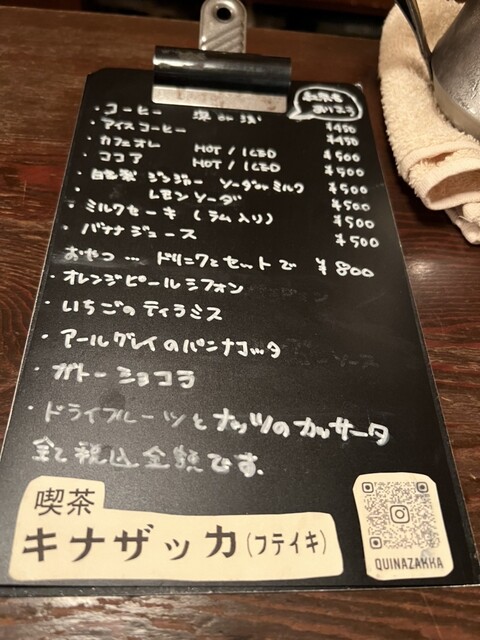 ・コーヒー 深 or 浅 ¥450
・アイスコーヒー ¥450
・カフェオレ HOT / ICED ¥500
・ココア HOT / ICED ¥500
・自家製 ジンジャー ソーダorミルク ¥500
・ レモンソーダ ¥500
・ミルクセーキ (ラム入り) ¥500
・バナナジュース ¥500
おやつ … ドリンクとセットで ¥800
・オレンジピールシフォン
・いちごのティラミス
・アールグレイのパンナコッタ
・ガトーショコラ
・ドライフルーツとナッツのカッサータ
全て税込金額です。
喫茶
キナザッカ(フテイキ)
QUINAZAKKA